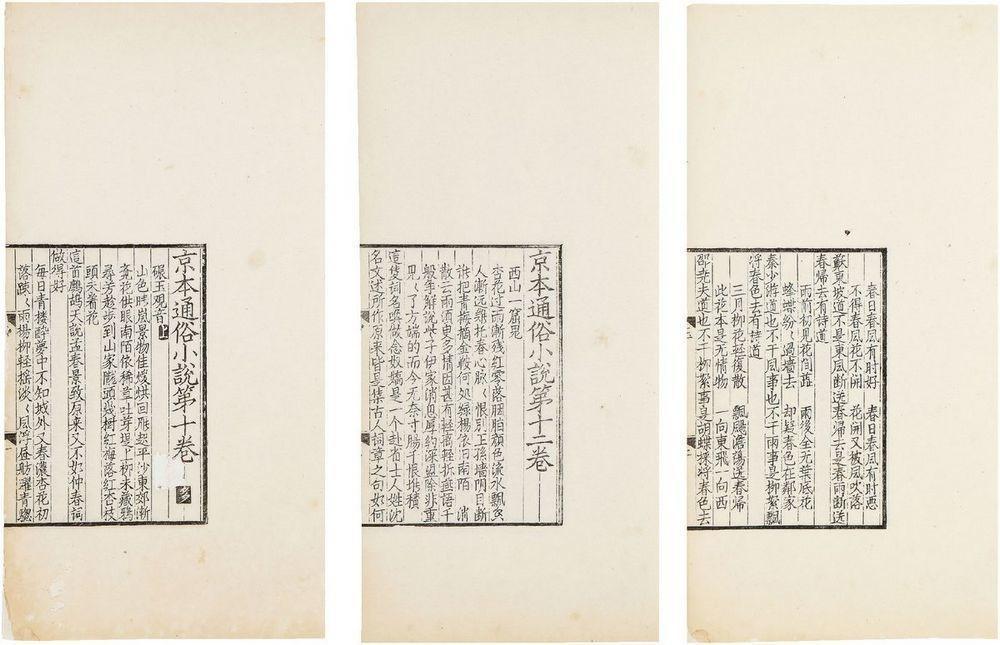 京本通俗小說第十卷
碾玉觀音 上
山色晴嵐景物佳煖烘回鴈起平沙東郊漸
覺花供眼南陌依稀草吐芽堤上柳未藏鴉
尋芳趁步到山家隴頭幾樹紅梅落紅杏枝
頭未着花
這首鷓鴣天說孟春景致原來又不如仲春詞
做得好
每日青樓醉夢中不知城外又春濃杏花初
落踈〻雨楊柳輕搖淡〻風浮畫舫躍青驄
京本通俗小說第十二卷
西山一窟鬼
杏花過雨漸殘紅零落胭脂顏色流水飄香
人漸遠難托春心脉〻恨別王孫墻陰目斷
誰把青梅摘金鞍何处綠楊依旧南陌 消
散云雨須臾多情因甚有輕离輕拆燕語千
般爭解說些子伊家消息厚約深盟除非重
見〻了方端的而今无奈寸腸千恨堆積
這隻詞名喚做念奴嬌是一个赴省士人姓沈
名文述所作原來皆是集古人詞章之句如何
春日春風有時好 春日春風有時惡
不得春風花不開 花開又被風吹落
蘇東坡道不是東風斷送春歸去是春雨斷送
春歸去有詩道
雨前初見花間蕋 雨後全无葉底花
蜂蝶紛〻過墻去 却疑春色在鄰家
秦少游道也不干風事也不干雨事是柳絮飄
將春色去有詩道
三月柳花輕復散 飄颺澹蕩送春歸
此花本是无情物 一向東飛一向西
邵尭夫道也不干柳絮事是胡蝶採將春色去